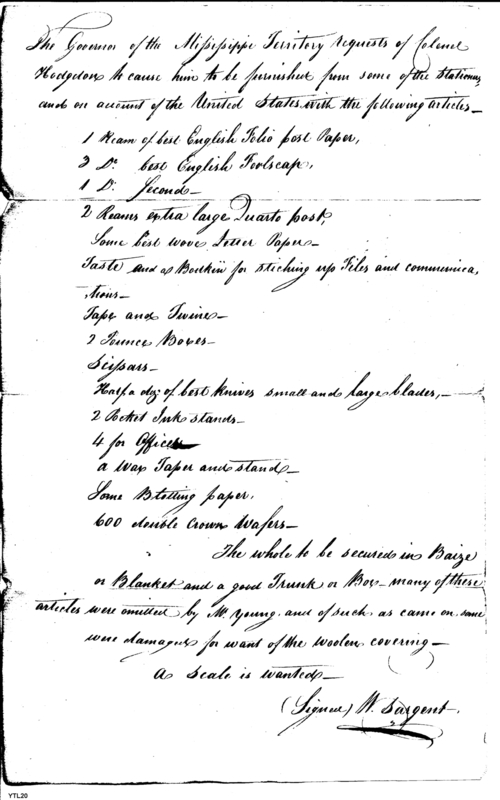 The Governor of the Missisippi Territory requests of Colonel
Hodgedon to cause him to be furnished from some of the Stationary
and on account of the United States with the following articles—
1 Ream of best English Folio post Paper,
3 Do. best English Foolscap,
1 Do. Second—
2 Reams extra large Quarto post,
Some best wove Letter Paper—
Taste and a Bodkin for stiching up Files and communica,
,tions—
Tape and Twine—
2 Pounce Boxes—
Scissars—
Half a doz: of best knives small and large blades,—
2 Pocket Ink stands—
4 for Office
a Wax Taper and stand—
Some Blotting paper.
600 double Crown Wafers—
The whole to be secured in Baize
or Blanket and a good Trunk or Box—many of these
articles were omitted by Mr. Young and of such as came on some
were damaged for want of the woolen covering—
A Seale is wanted—
(Signed) W. Sargent.
YTL20